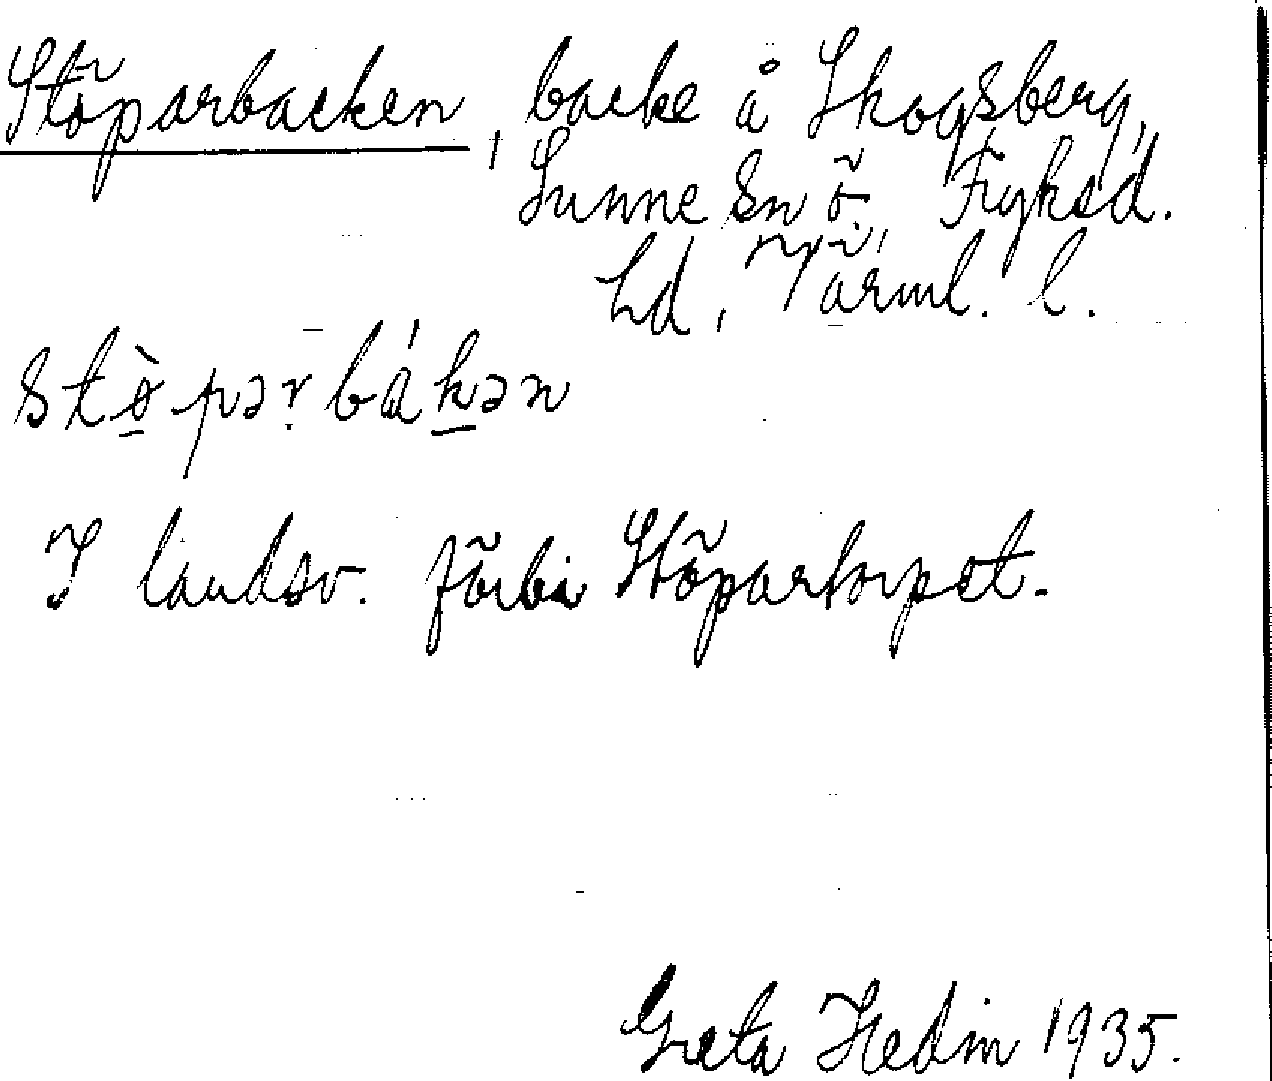 Stöparbacken, backe å Skogsberg,
Sunne sn ö. Fryksd.
hd, Värml. l.
stø̀pərbákən
I landsv. förbi Stöpartorpet.
Greta Hedin 1935.